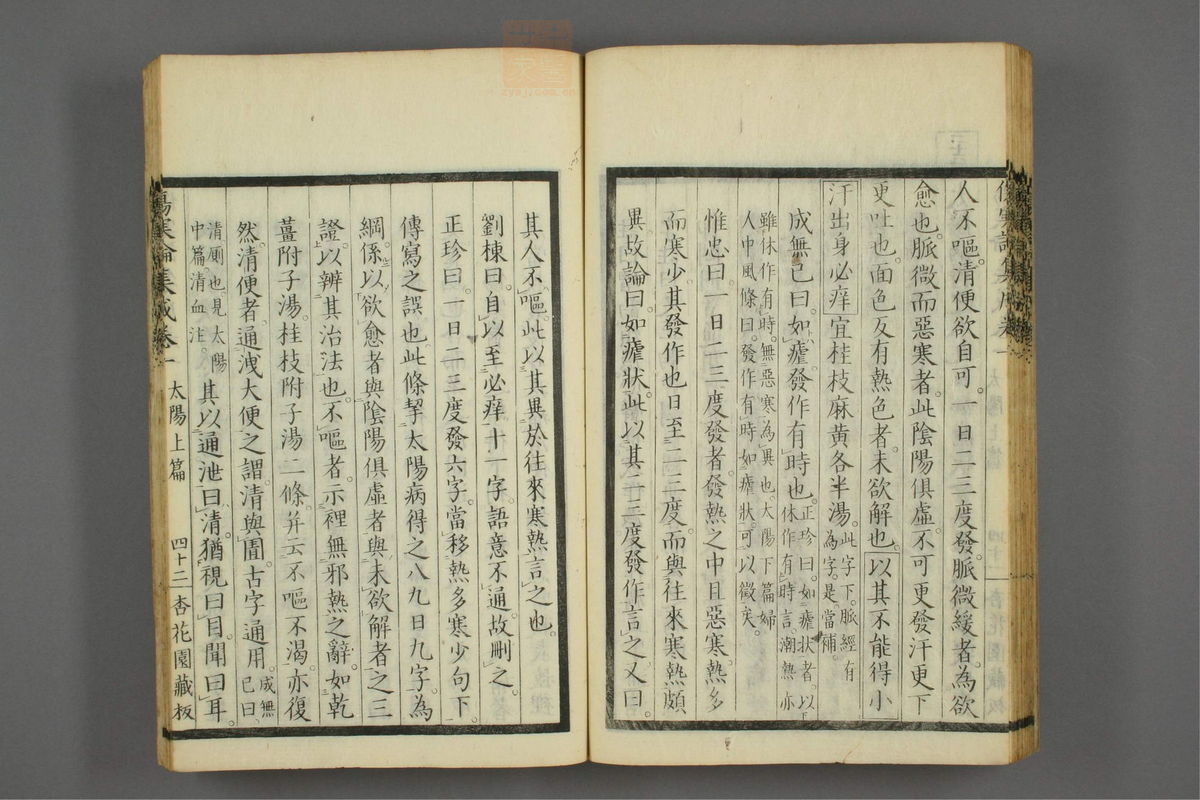 傷寒論集成卷一
人不嘔。清便欲自可。一日二三度發。脈微緩者。為欲
愈也。脈微而惡寒者。此陰陽俱虛。不可更發汗更下
更吐也。面色反有熱色者。未欲解也。以其不能得小
汗出身必痒宜桂枝麻黃各半湯。此字下。脈經有
為字。是。當補。
成無己曰。如瘧。發作有時也。正珍曰。如瘧狀者。以下
休作有時言。潮熱亦
雖休作有時。無惡寒為異也。太陽下篇婦
人中風條曰。發作有時如瘧狀。可以徵矣。
惟忠曰。一日二三度發者。發熱之中且惡寒。熱多
而寒少。其發作也日至二三度。而與往來寒熱頗
異。故論曰。如瘧狀。此以其二三度發作言之。又曰。
其人不嘔。此以其異於往來寒熱言之也。
劉棟曰。自以至必痒十一字。語意不通。故刪之。
正珍曰。一日二三度發六字。當移熱多寒少句下。
傳寫之誤也。此條挈太陽病得之八九日九字。為
綱。係以欲愈者與陰陽俱虛者與未欲解者之三
證。以辨其治法也。不嘔者。示裡無邪熱之辭。如乾
薑附子湯桂枝附子湯二條。并云不嘔不渴。亦復
然。清便者通洩大便之謂。清與圊古字通用。成無
己曰。
清厠也。見太陽
中篇清血注。其以通泄曰清。猶視曰目聞曰耳。
傷寒論集成卷一 太陽上篇 四十三 杏花園藏板
zysj.com.cn